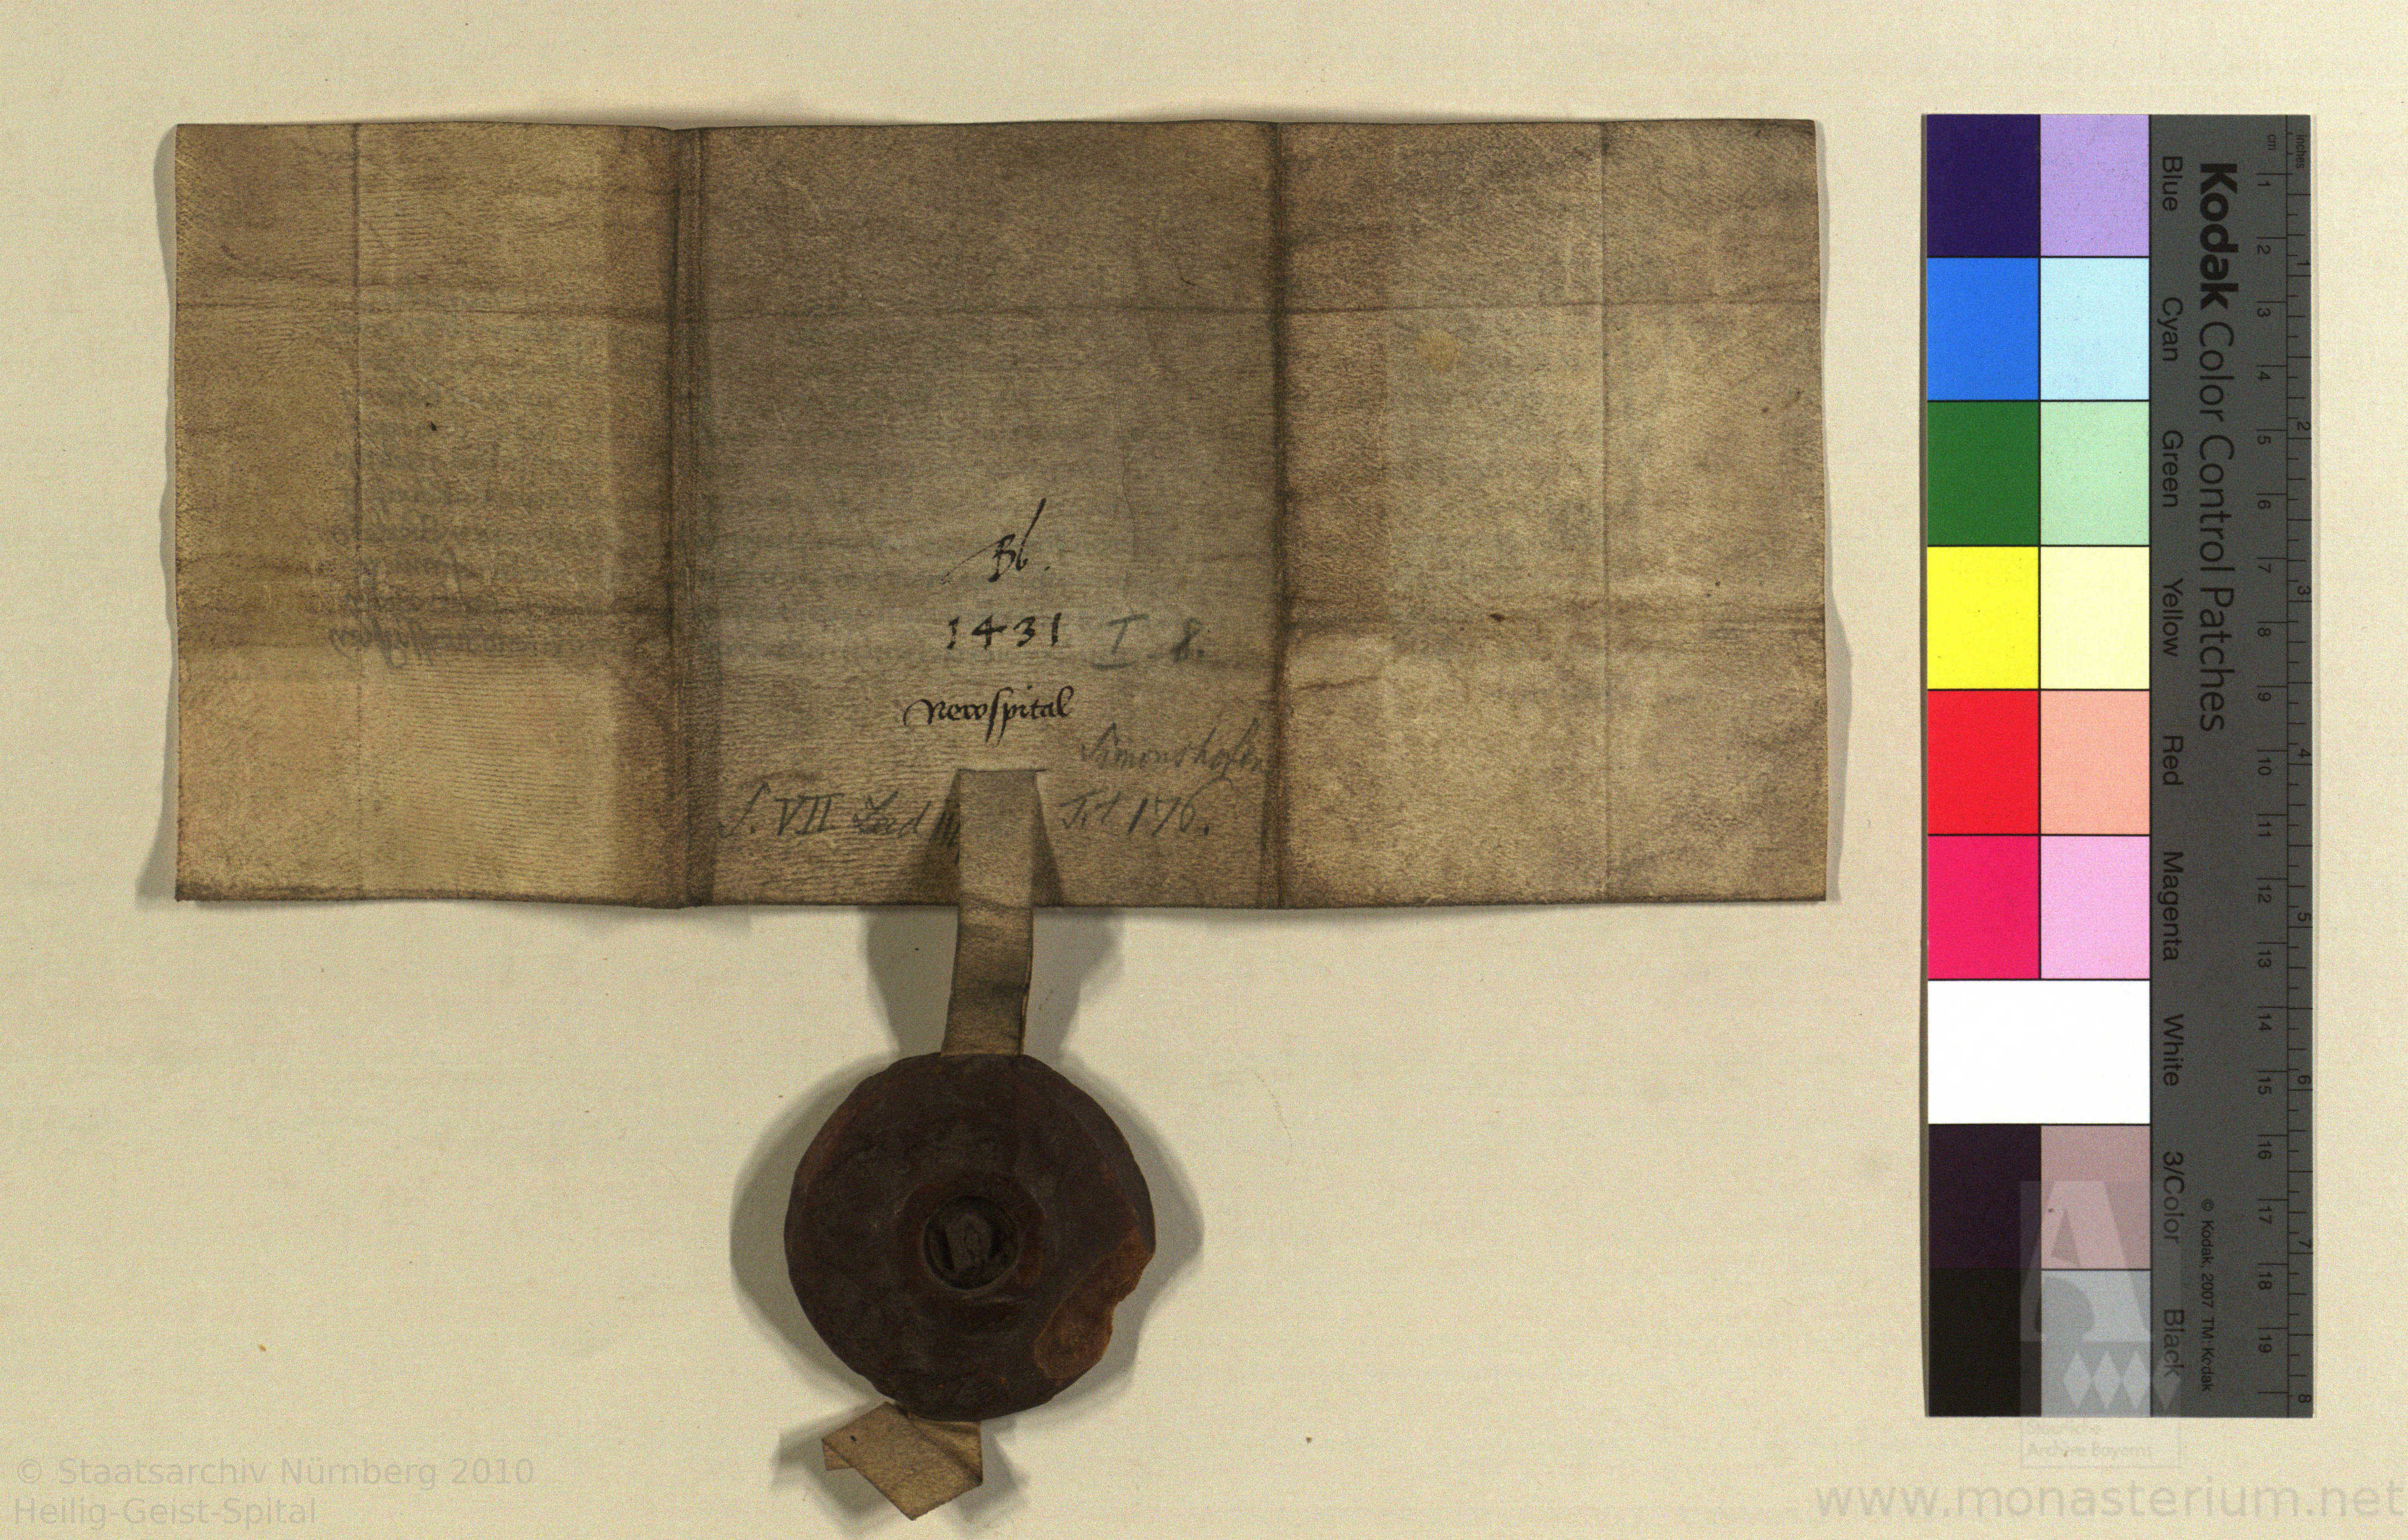 Bb.
1431 I 8.
Newspital
Simonshofen
S. VII Lad Tit 176.
Kodak Color Control Patches
Blue Cyan Green Yellow Red Magenta White 3/Color Black
© Kodak, 2007 TM: Kodak
inches 1 2 3 4 5 6 7 8
cm 1 2 3 4 5 6 7 8 9 10 11 12 13 14 15 16 17 18 19
Staatliche
Archive Bayerns
© Staatsarchiv Nürnberg 2010
Heilig-Geist-Spital
www.monasterium.net